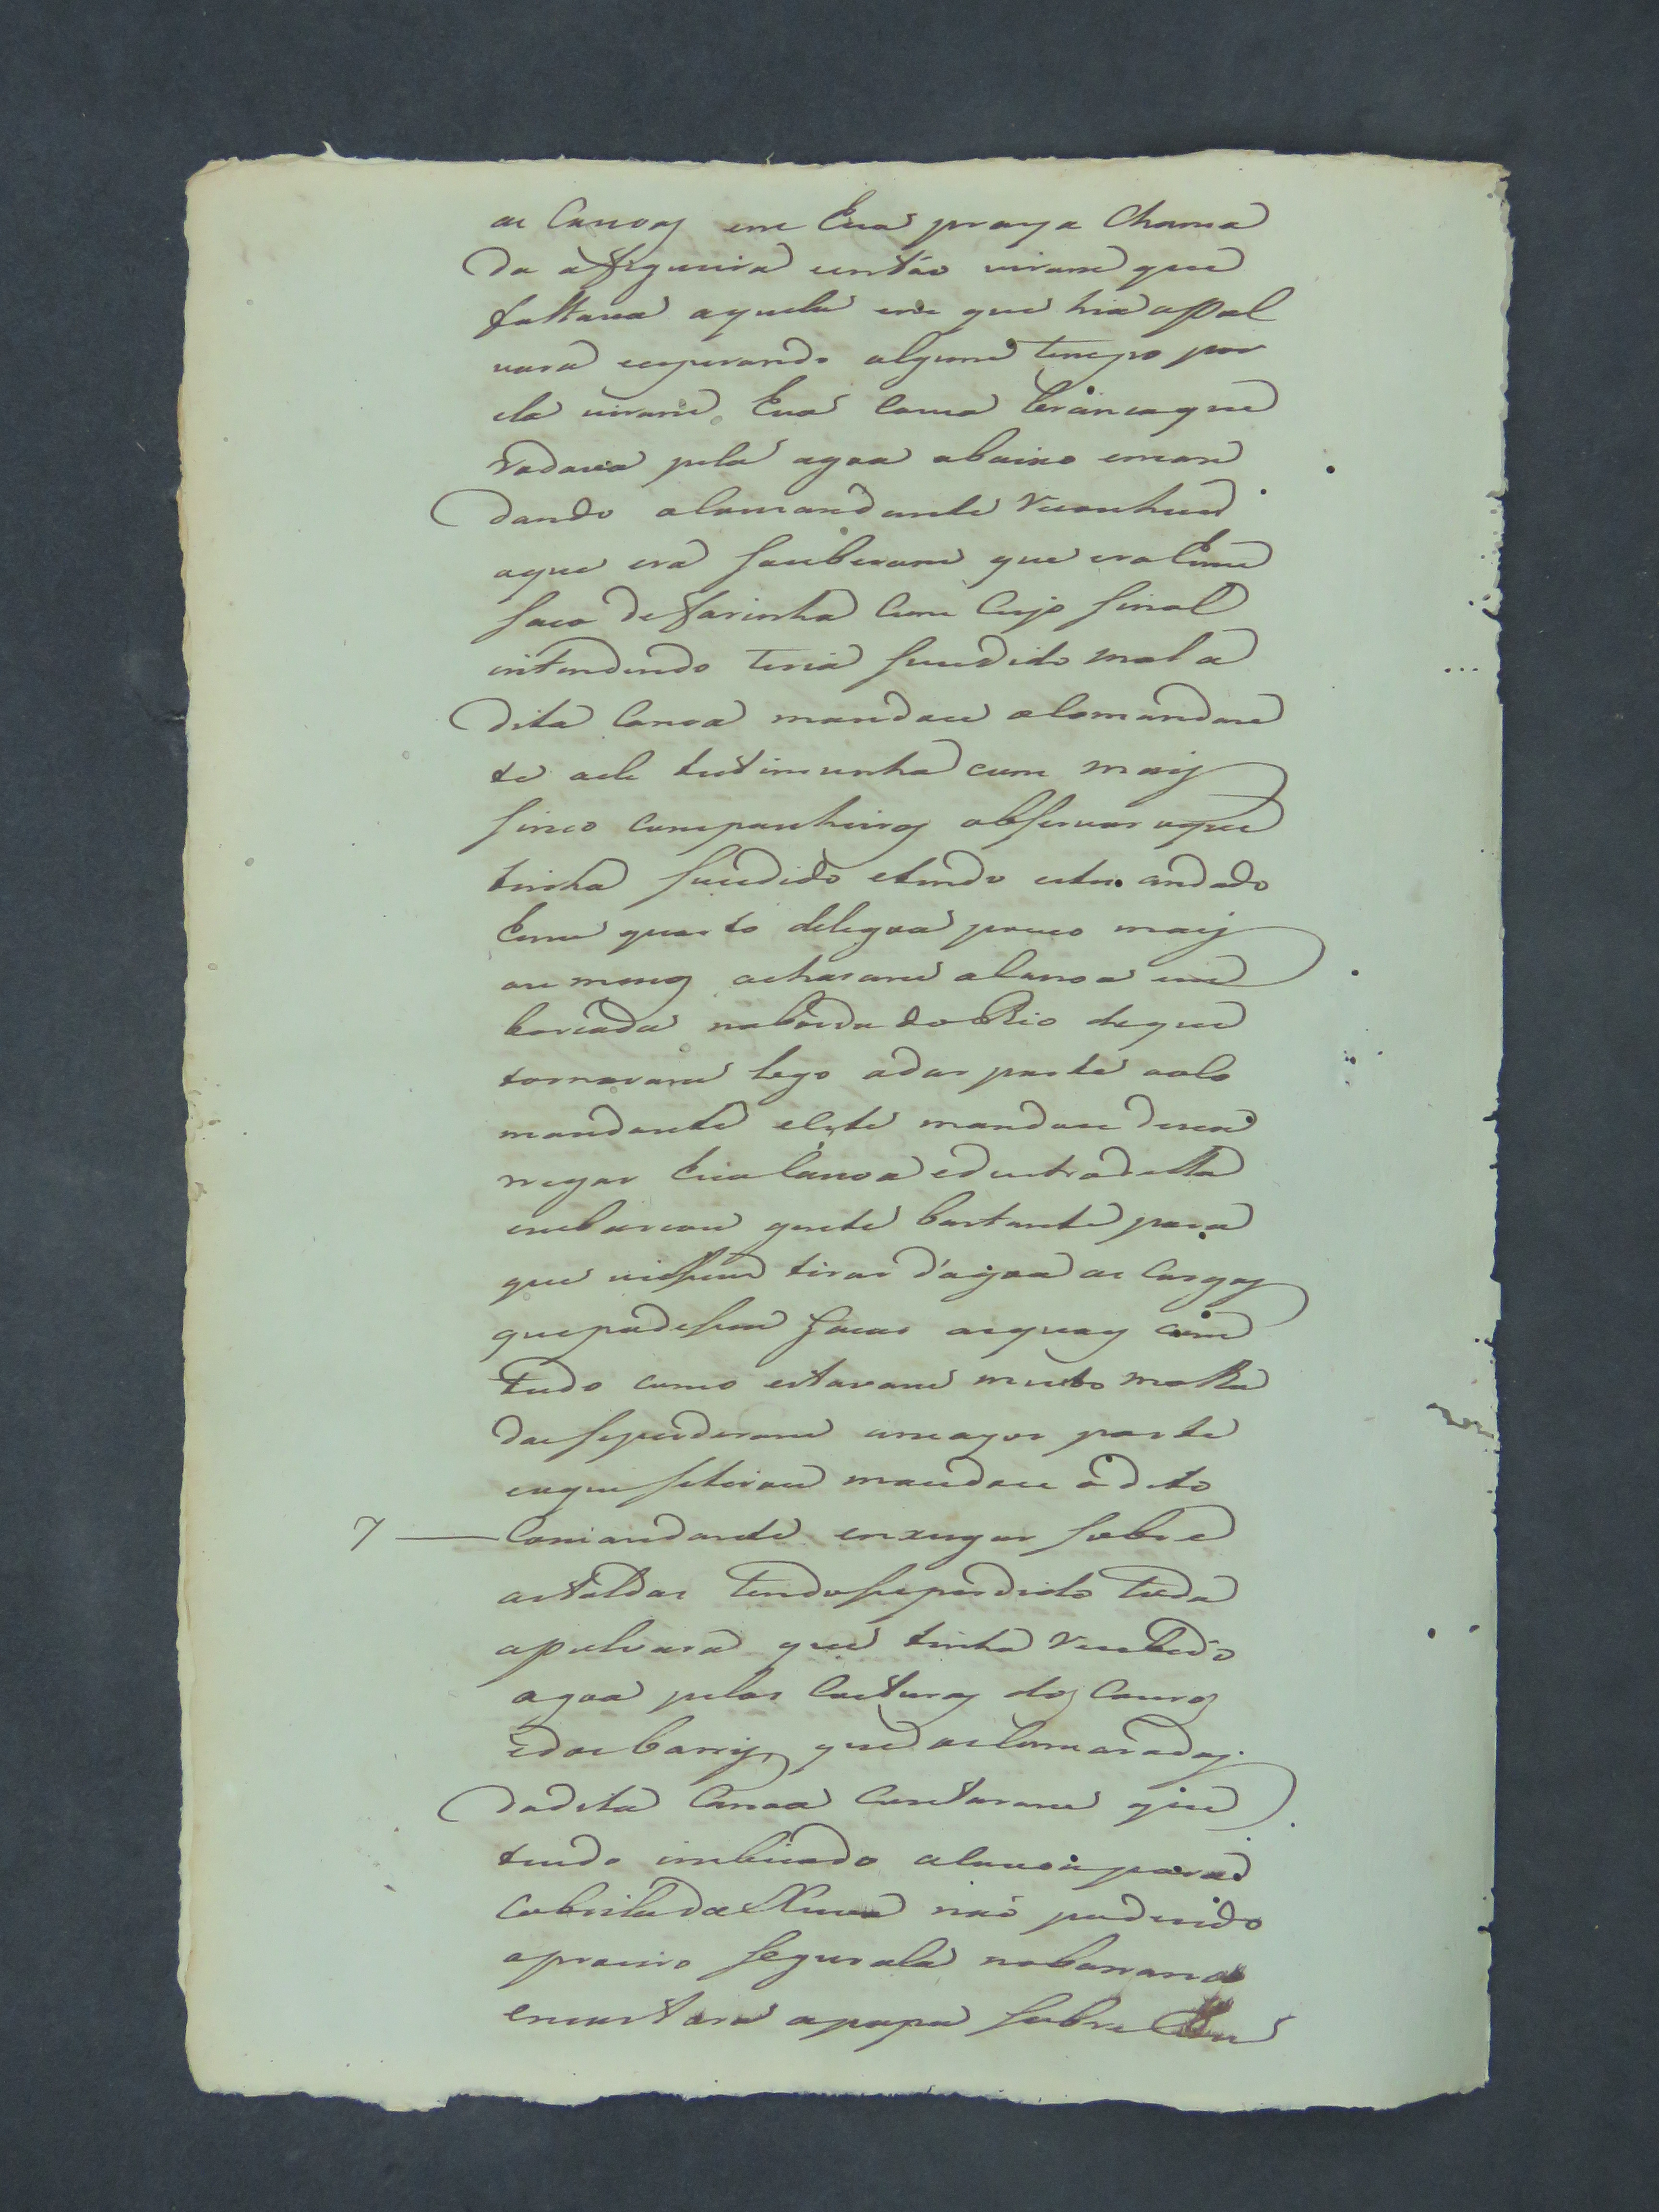 as Canoas em hua praya chama
da a figueira então viram que
faltava aquela em que hia a Pol
vara esperando algum tempo por
ela viram hua couza branca que
rodava pela agoa abaixo eman
dando oComandante reconhecer
oque era souberam que era hum
saco defarinha com cujo sinal
intendendo teria sucedido mal a
dita Canoa mandou oComandan
te aele testimunha com mais
sinco companheiros observar oque
tinha sucedido etendo estes andado
hum quarto delegoa pouco mais
ou menos acharam aCanoa em
borcada naborda do Rio deque
tornaram logo adar parte aoCo
mandante eEste mandou desca
rregar hua Canoa edentro della
embarcou gente bastante para
que viesem tirar d'agoa as Cargas
que podesem sacar as quais com
tudo como estavam muito molha
das seperderam amayor parte
eoque setirou mandou o dito
7 — Comandante enxugar sobre
astoldas tendoseperdido toda
apolvara que tinha recebido
agoa pelas Costuras dos Couros
edos barris, que os Camaradas
dadita Canoa Contaram que
tendo imbicado aCanoa para
cobrila da Chuva não podendo
oproeiro segurala nobarranco
encostara apopa sobre